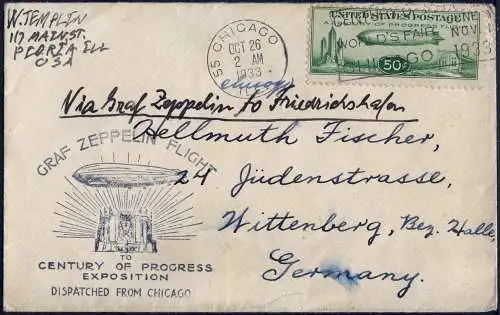 W. TEMPLIN
117 MAIN ST.
PEORIA ILL
USA
55 CHICAGO
OCT 26
2 AM
1933
UNITED STATES POSTAGE
A CENTURY OF PROGRESS FLIGHT
50c
JUNE
WORLD'S FAIR NOV. 1
CHICAGO 1933
Via Graf Zeppelin to Friedrichshafen
Hellmuth Fischer,
24 Jüdenstrasse,
Wittenberg, Bez. Halle.
Germany.
GRAF ZEPPELIN FLIGHT
TO
CENTURY OF PROGRESS
EXPOSITION
DISPATCHED FROM CHICAGO